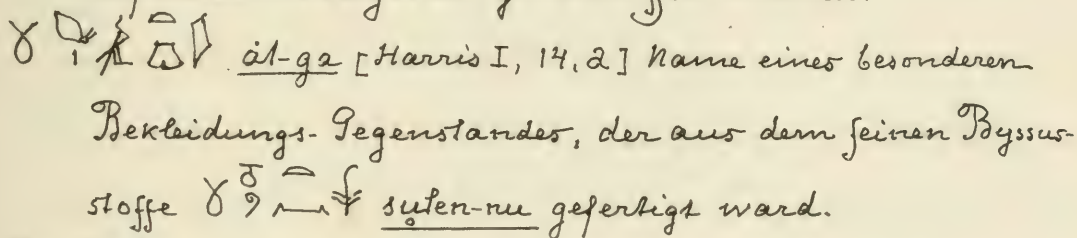 åt-ga [Harris I, 14, 2] Name eines besonderen
Bekleidungs-Gegenstandes, der aus dem feinen Byssus-
stoffe suten-nu gefertigt ward.